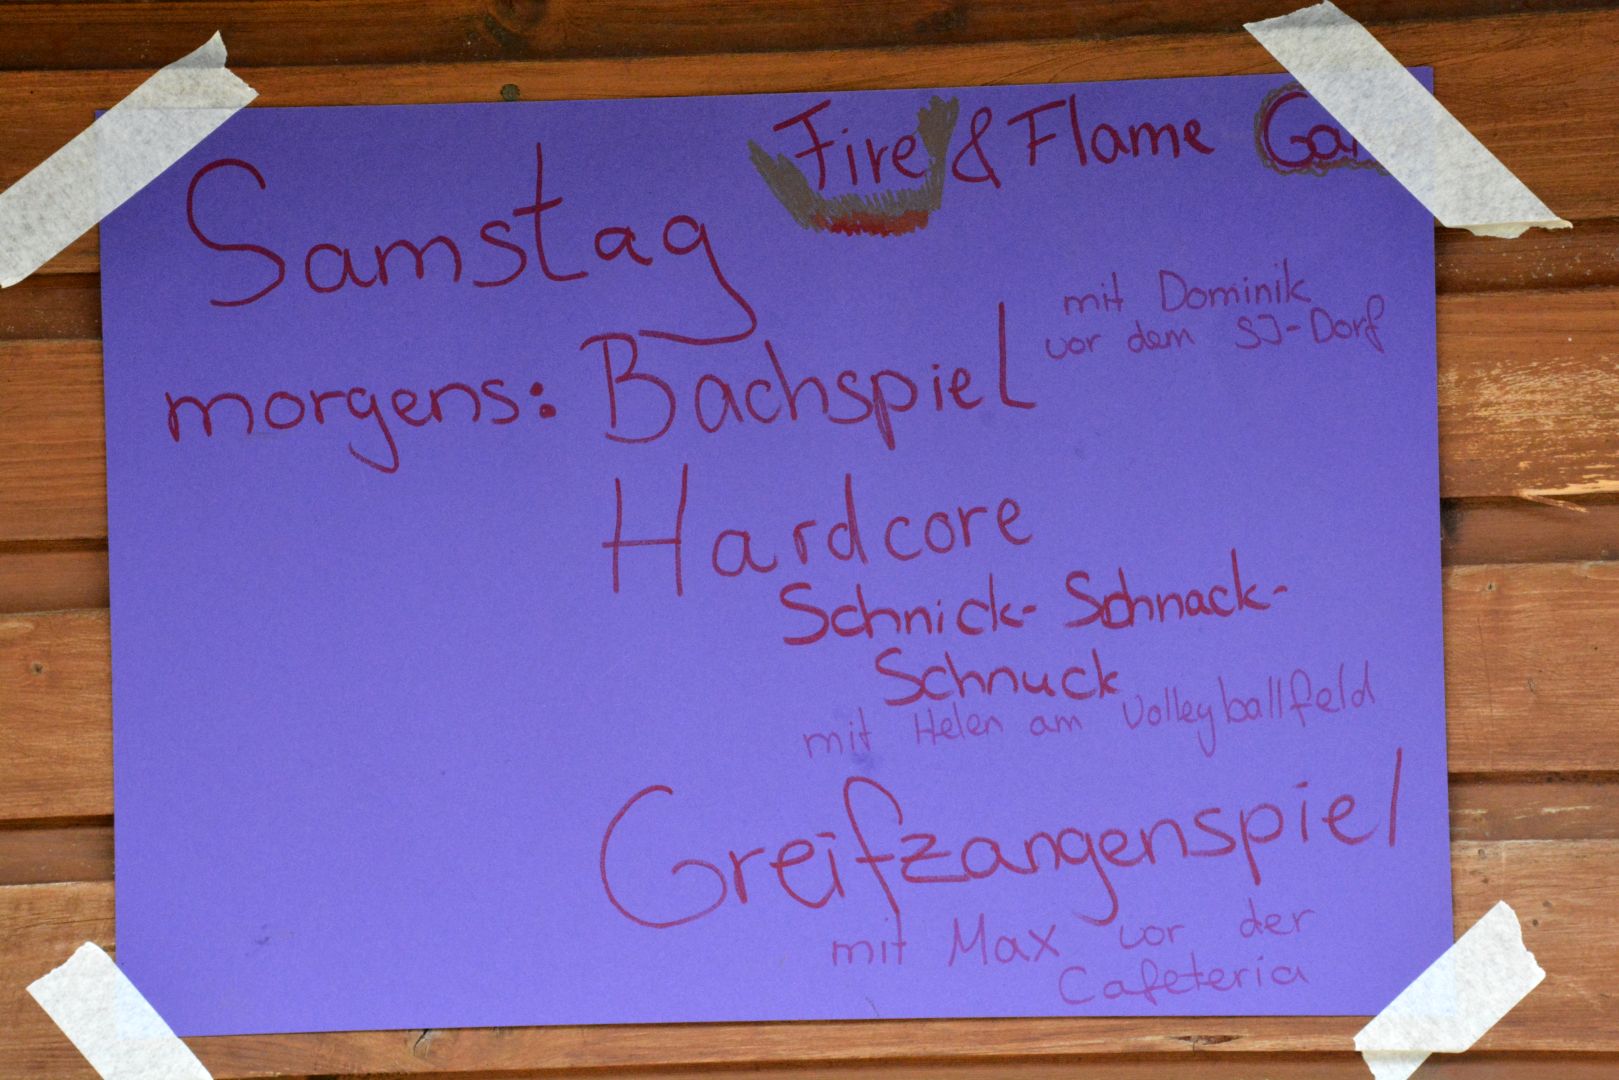 Fire & Flame
Samstag
mit Dominik
vor dem SJ-Dorf
morgens: Bachspiel
Hardcore
Schnick-Schnack-
Schnuck
mit Helen am Volleyballfeld
Greifzangenspiel
mit Max vor der
Cafeteria